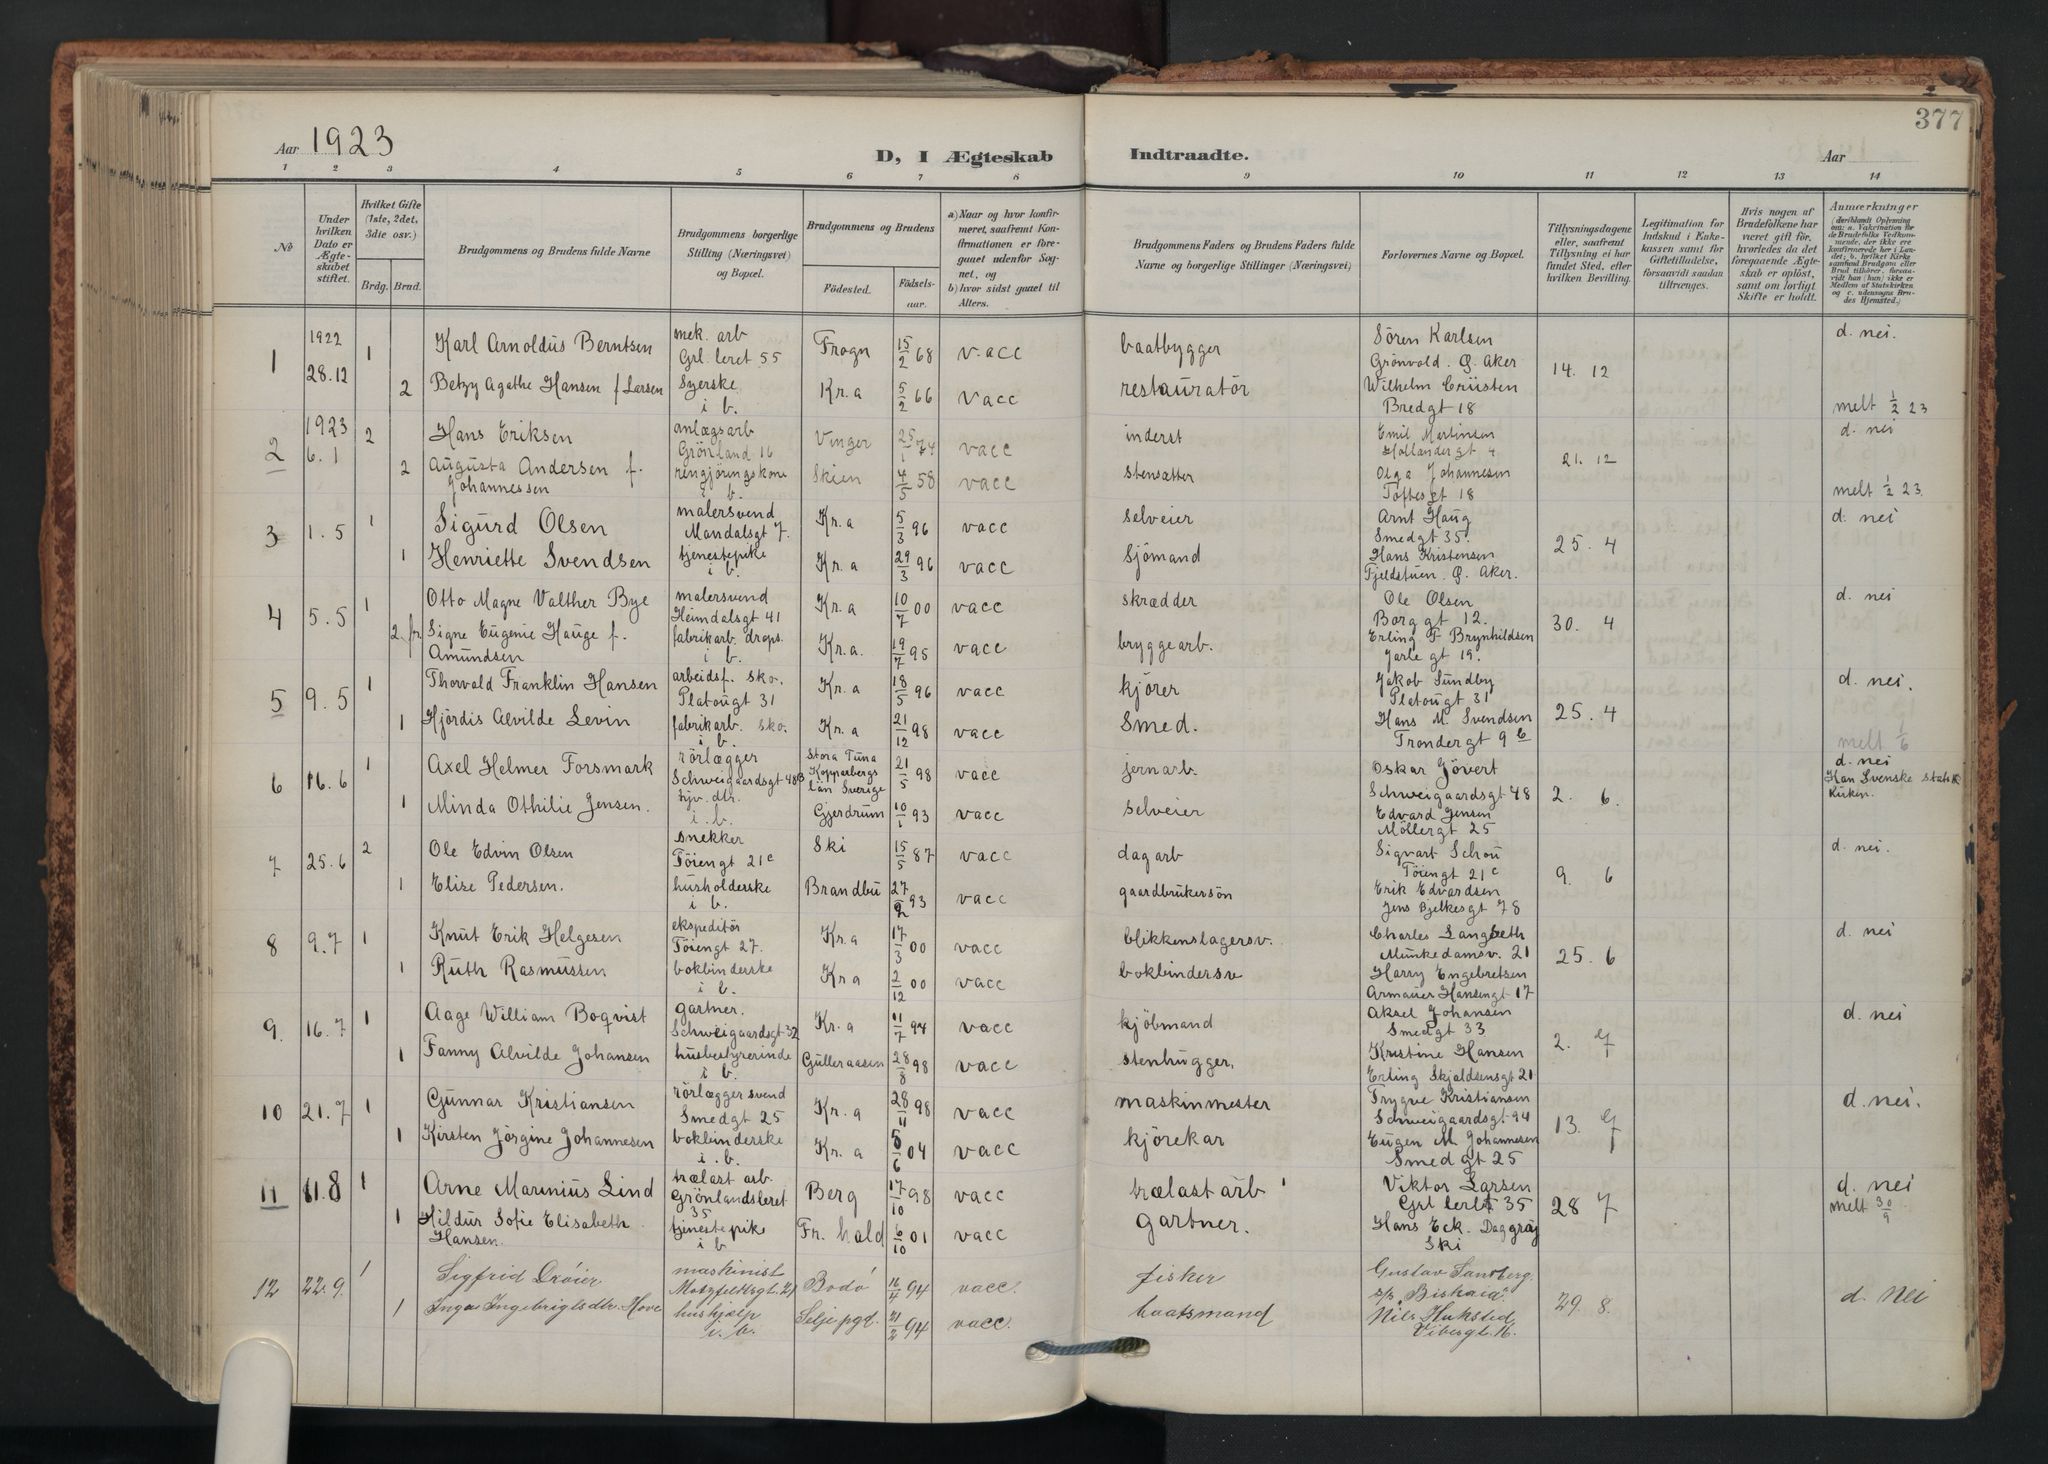 377
Aar 1923
D, I Ægteskab Indtraadte.
Aar
1 2 3 4 5 6 7 8 9 10 11 12 13 14
No
Under hvilken Dato er Ægteskabet stiftet.
Hvilket Gifte (1ste, 2det, 3die osv.)
Brdg. Brud.
Brudgommens og Brudens fulde Navne
Brudgommens borgerlige Stilling (Næringsvei) og Bopæl.
Brudgommens og Brudens
Födested. Födselsaar.
a) Naar og hvor konfirmeret, saafremt Konfirmationen er foregaaet udenfor Sognet, og
b) hvor sidst gaaet til Alters.
Brudgommens Faders og Brudens Faders fulde Navne og borgerlige Stillinger (Næringsvei)
Forlovernes Navne og Bopæl.
Tillysningsdagene eller, saafremt Tillysning ei har fundet Sted, efter hvilken Bevilling.
Legitimation for Indskud i Enkekassen samt for Giftetilladelse, forsaavidt saadan tiltrænges.
Hvis nogen af Brudefolkene har været gift för, hvorledes da det foregaaende Ægteskab er oplöst, samt om lovligt Skifte er holdt.
Anmærkninger (deriblandt Oplysning om: a. Vakcination for de Brudefolks Vedkommende, der ikke ere konfirmerede her i Landet; b. hvilket Kirkesamfund Brudgom eller Brud tilhörer, forsaavidt han (hun) ikke er Medlem af Statskirken og c. udensogns Brudes Hjemsted.)
1 1922 28.12 1 Karl Arnoldus Berntsen mek. arb Grl. leret 55 Frogn 15/2 68 vacc baatbygger Sören Karlsen Grönvold. Ø. Aker 14. 12 d. nei.
2 Betzy Agathe Hansen f Larsen Syerske i b. Kr.a 5/2 66 vacc restauratör Wilhelm Crüsten Bredgt 18 melt 1/2 23
2 1923 6.1 2 Hans Eriksen anlægsarb Grönland 16 Vinger 25/1 74 vacc inderst Emil Martinsen Hollandergt 4 21. 12 d. nei
2 Augusta Andersen f. Johannessen rengjöringskone i b. Skien 4/5 58 vacc stensætter Olga Johannesen Töftesgt 18 melt 1/2 23.
3 1.5 1 Sigurd Olsen malersvend Mandalsgt 7. Kr.a 5/3 96 vacc selveier Arnt Haug Smedgt 35. 25. 4 d. nei
1 Henriette Svendsen tjenestepike i b. Kr. a 29/3 96 vacc sjömand Hans Kristensen Fjeldstuen. Ø. Aker.
4 5.5 1 Otto Magne Valther Bye malersvend Heimdalsgt 41 Kr.a 10/7 00 vacc skrædder Ole Olsen Borggt 12. 30. 4 d. nei
2. fr Signe Eugenie Hauge f. Amundsen fabrikarb. drops. i b. Kr.a. 19/7 95 vacc bryggearb. Erling F Brynhildsen Jarlegt 19.
5 9.5 1 Thorvald Franklin Hansen arbeidsf. sko. Platougt 31 Kr.a 18/5 96 vacc kjörer Jakob Sundby Platougt 31 25. 4 d. nei.
1 Hjördis Alvilde Levin fabrikarb. sko. i b. Kr.a 21/12 98 vacc smed. Hans M. Svendsen Trondergt 9 b melt 1/6
6 16.6 1 Axel Helmer Forsmark rörlægger Schweigaardsgt 48B Stora Tuna Kopparbergs län Sverige 21/5 98 vacc jernarb. Oskar Jövert Schweigaardsgt 48 2. 6. d. nei Han Svenske stats Kirken.
1 Minda Othilie Jensen. tjv. dtr. i. b. Gjerdrum 10/1 93 vacc selveier Edvard Jensen Möllergt 25
7 25.6 2 Ole Edvin Olsen snekker Töiengt 21c Ski 15/5 87 vacc dagarb Sigvart Schou Töiengt 21c 9. 6 d. nei.
1 Elise Pedersen. husholderske i b. Brandbu 27/2 93 vacc gaardbrukersön Erik Edvardsen Jens Bjelkesgt 78
8 9.7 1 Knut Erik Helgesen ekspeditör Töiengt 27. Kr.a 17/3 00 vacc blikkenslagersv. Charles Langseth Munkedamsv. 21 25. 6 d. nei
1 Ruth Rasmussen bokbinderske i b. Kr a 2/12 00 vacc bokbindersv Harry Engebretsen Armauer Hansengt 17
9. 16.7 1 Aage William Boqvist gartner. Schweigaardsgt 32 Kr.a 11/7 94 vacc kjöbmand Aksel Johansen Smedgt 33 2. 7 d. nei
1 Fanny Alvilde Johansen husbestyrerinde i b. Gulleraasen 28/8 98 vacc stenhugger. Kristine Hansen Erling Skjaldsensgt 21
10 21.7 1 Gunnar Kristiansen rörlæggersvend Smedgt 25 Kr. a 28/11 98 vacc maskinmester Trygve Kristiansen Schweigaardsgt 94 13. 7 d. nei.
1 Kirsten Jörgine Johannesen bokbinderske i. b. Kr. a 5/6 04 vacc kjörekar Eugen M Johannesen Smedgt 25
11 11.8 1 Arne Marinius Lind trælast arb. Grönlandsleret 35 Berg 17/10 98 vacc trælastarb Viktor Larsen Grl leret 35 28 7 d. nei
1 Hildur Sofie Elisabeth Hansen. tjenestepike i b Fr. hald 6/10 01 vacc gartner. Hans Eck. Daggröy Ski melt 30/9
12 22.9. 1 Sigfrid Dröier maskinist Motzfeldtsgt. 21 Bodö 16/4 94 vacc. fisker Gustav Sandberg. s/s "Biskaia" 29. 8. d. Nei
1 Inga Ingebrigtsdtr. Hove hushjælp i. b. Selje pgd. 21/2 94 vacc. baatsmand Nils Hukstad Vibesgt.